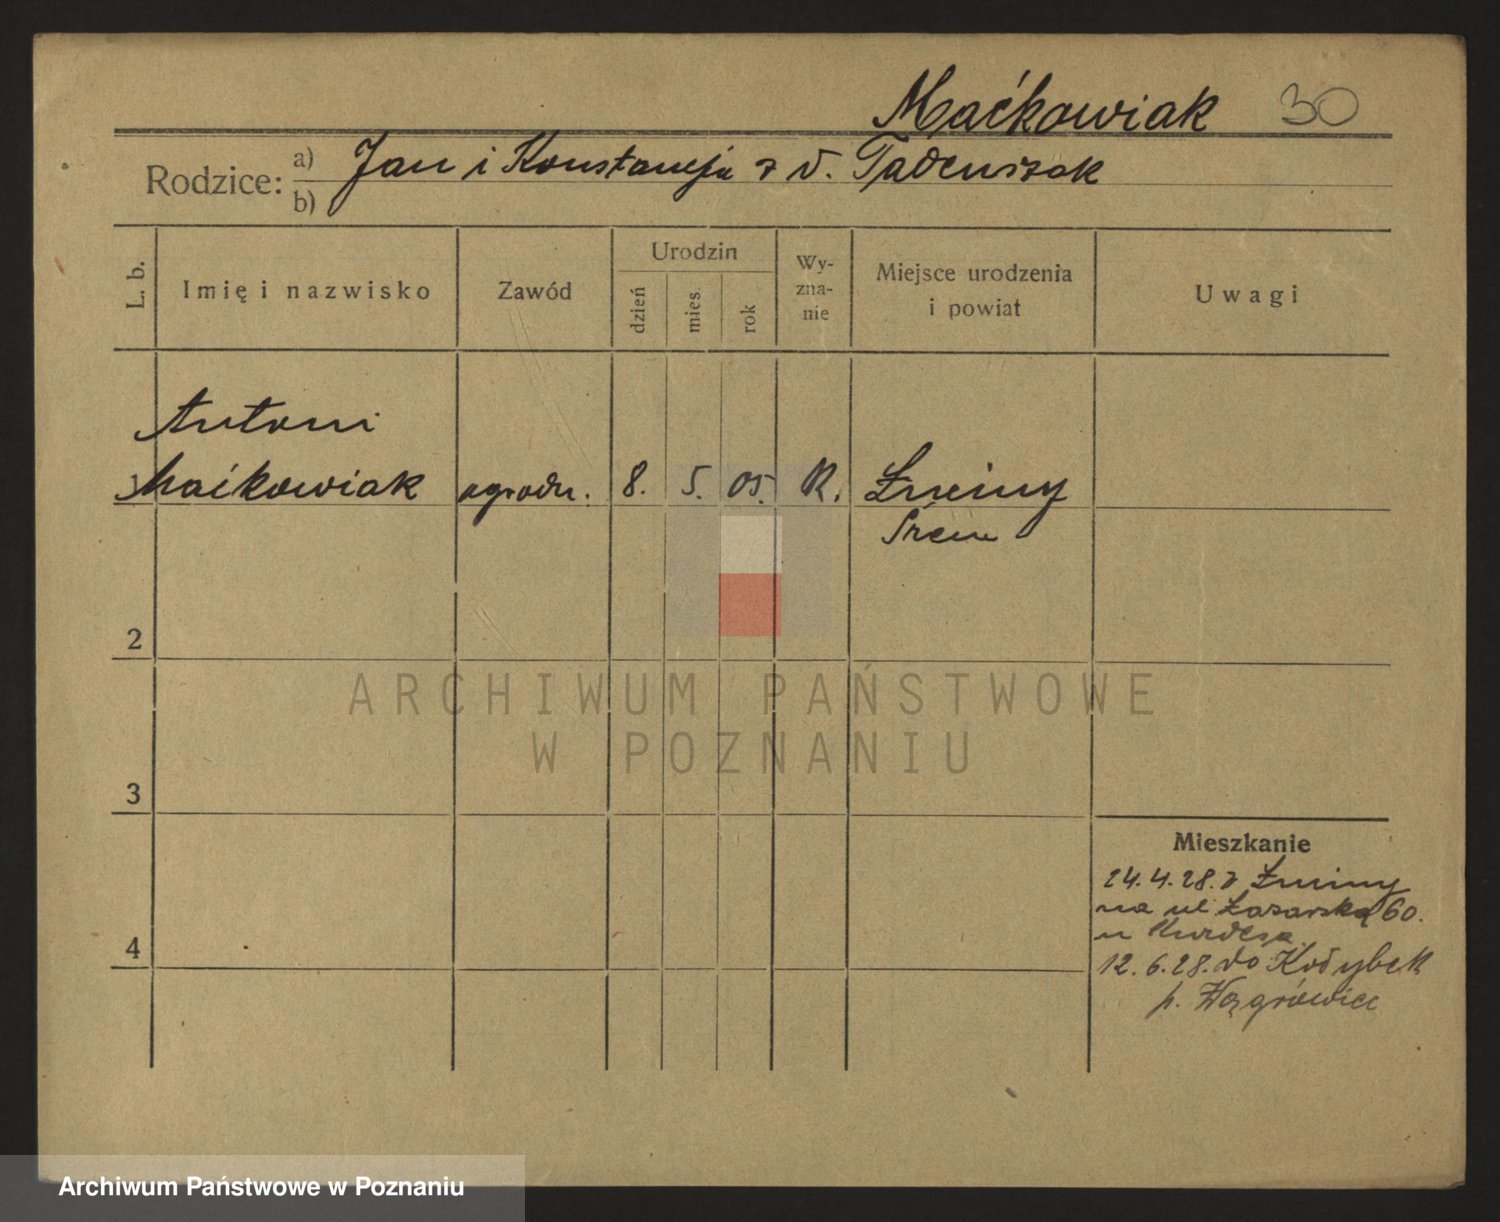 Maćkowiak 30
Rodzice: a) Jan i Konstancja z d. Tadeuszak
b)
L. b. Imię i nazwisko Zawód Urodzin dzień mies. rok Wyzna-nie Miejsce urodzenia i powiat Uwagi
Antoni
1 Maćkowiak ogrodn. 8. 5. 05. R.
Śrem
2
ARCHIWUM PAŃSTWOWE
W POZNANIU
3
Mieszkanie
24.4.28. z
na ul Łazarską 60.
u
4
12.6.28. do Kołybek
p. Wągrowiec
Archiwum Państwowe w Poznaniu